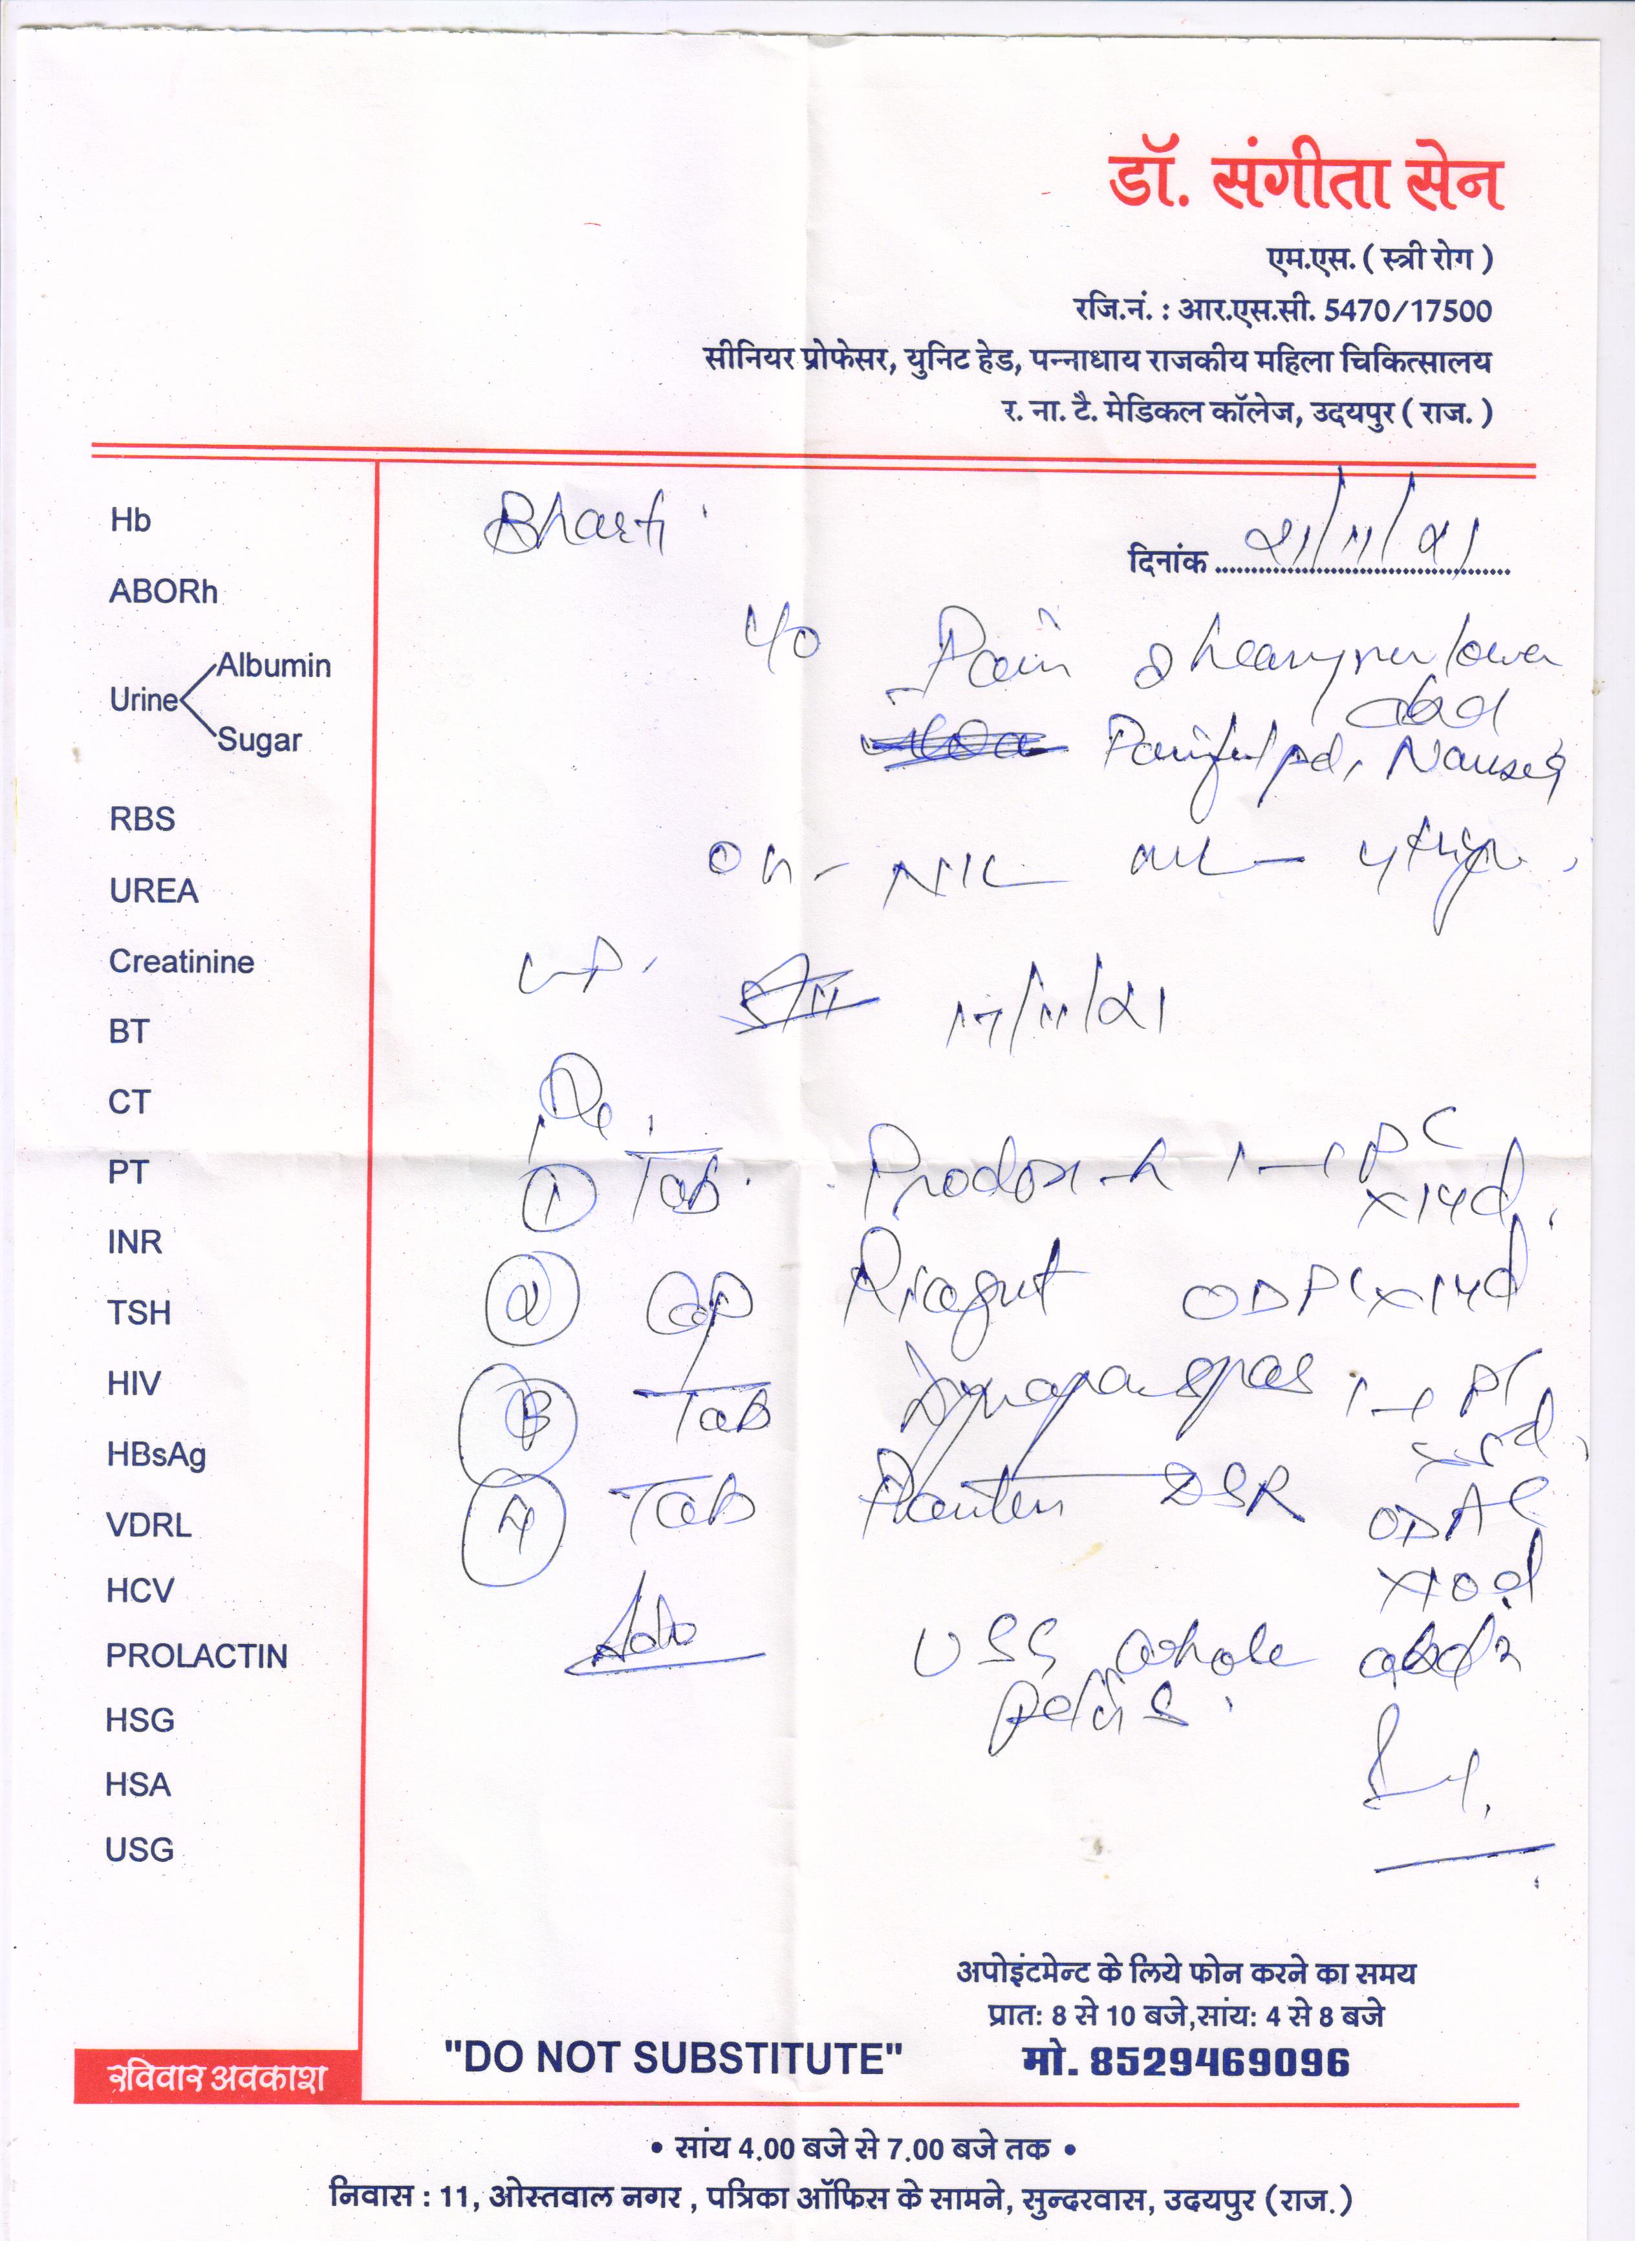 डॉ. संगीता सेन
एम.एस. ( स्त्री रोग )
रजि.नं. : आर.एस.सी. 5470/17500
सीनियर प्रोफेसर, युनिट हेड, पन्नाधाय राजकीय महिला चिकित्सालय
र. ना. टै. मेडिकल कॉलेज, उदयपुर ( राज. )
Bharti
दिनांक 21/11/21
Hb
ABORh
Urine
Albumin
Sugar
RBS
UREA
Creatinine
BT
CT
PT
INR
TSH
HIV
HBsAg
VDRL
HCV
PROLACTIN
HSG
HSA
USG
c/o Pain & heavyness lower
abd
Painful pd, Nausea
OH - NIL ML -
LMP. 17/11/21
Rx
① Tab. 1-1 PC
x14d
② Cap ODPC x14d
③ Tab Dynapar spas 1-1 PC
x5d
④ Tab DSR ODAC
x10d
Adv USG whole abd &
pelvis.
अपोइंटमेन्ट के लिये फोन करने का समय
प्रात: 8 से 10 बजे,सांय: 4 से 8 बजे
"DO NOT SUBSTITUTE" मो. 8529469096
रविवार अवकाश
• सांय 4.00 बजे से 7.00 बजे तक •
निवास : 11, ओस्तवाल नगर , पत्रिका ऑफिस के सामने, सुन्दरवास, उदयपुर (राज.)